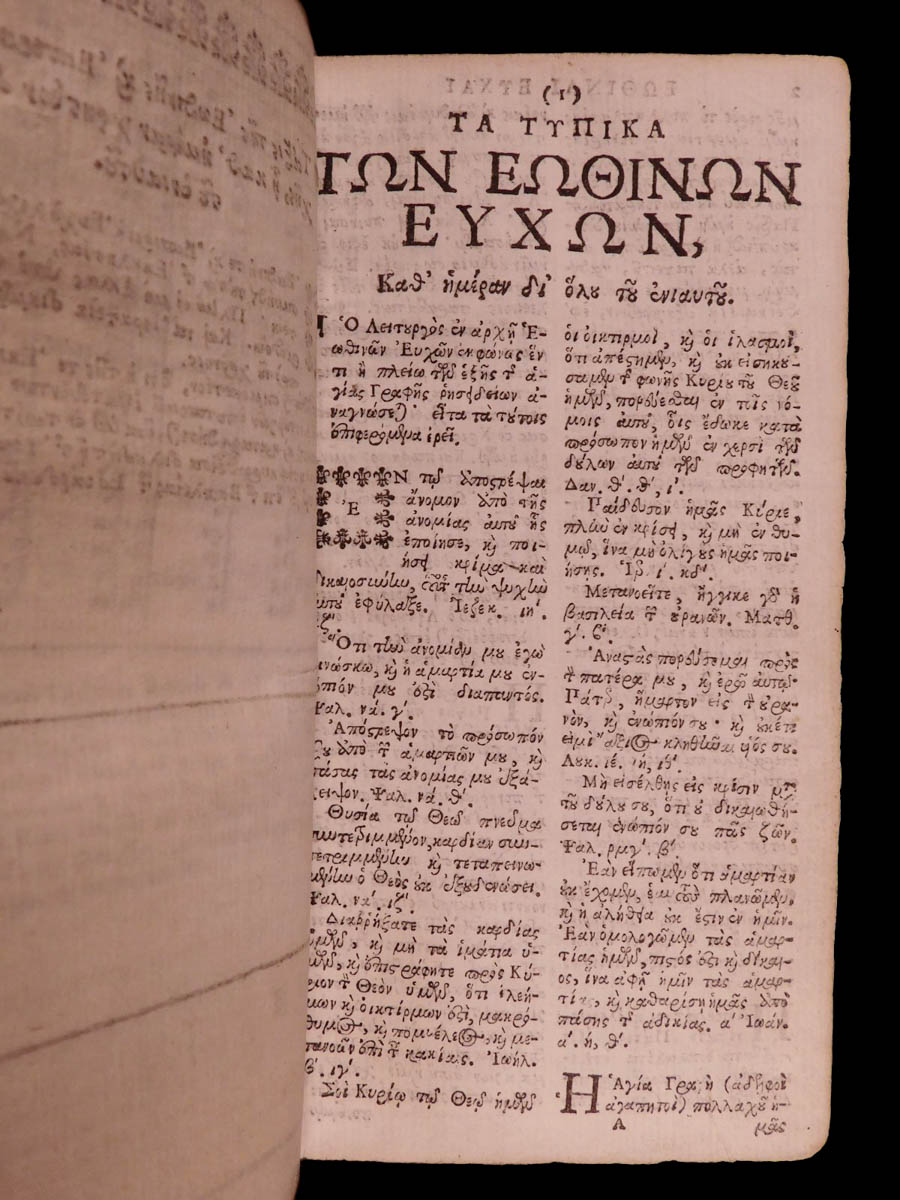 (1)
ΤΑ ΤΥΠΙΚΑ
ΤΩΝ ΕΩΘΙΝΩΝ
ΕΥΧΩΝ,
Καθ' ἡμέραν δι' ὅλου τοῦ ἐνιαυτοῦ.
Ὁ Λειτουργὸς ἐν ἀρχῇ Ἑ-
ωθινῶν Εὐχῶν ἐκφώνως ἕν
τι ἢ πλείω τῶν ἑξῆς τ ἁ-
γίας Γραφῆς ῥησειδίων ἀ-
ναγνώσε) εἶτα τὰ τούτοις
ἐπιφερόμενα ἐρεῖ.
ἘΝ τῷ ἀποστρέψαι
ἄνομον ἀπὸ τῆς
ἀνομίας αὐτοῦ ἧς
ἐποίησε, καὶ ποι-
ήσῃ κρίμα καὶ
δικαιοσύνην, οὗτος τὴν ψυχὴν
αὐτοῦ ἐφύλαξε. Ἰεζεκ. ιη΄.
κζ΄.
Ὅτι τὴν ἀνομίαν μου ἐγὼ
γινώσκω, καὶ ἡ ἁμαρτία μου ἐν-
ώπιόν μου ἐστὶ διαπαντός.
Ψαλ. να΄. γ΄.
Ἀπόστρεψον τὸ πρόσωπόν
σου ἀπὸ τ ἁμαρτιῶν μου, καὶ
πάσας τὰς ἀνομίας μου ἐξά-
λειψον. Ψαλ. να΄. θ΄.
Θυσία τῷ Θεῷ πνεῦμα
συντετριμμένον, καρδίαν συν-
τετριμμένην καὶ τεταπεινω-
μένην ὁ Θεὸς οὐκ ἐξουδενώσει.
Ψαλ. να΄. ιζ΄.
Διαῤῥήξατε τὰς καρδίας
ὑμῶν, καὶ μὴ τὰ ἱμάτια ὑ-
μῶν, καὶ ἐπιστράφητε πρὸς Κύ-
ριον τ Θεὸν ὑμῶν, ὅτι ἐλεή-
μων καὶ οἰκτίρμων ἐστὶ, μακρό-
θυμος, καὶ πολυέλεος, καὶ με-
τανοῶν ἐπὶ τ κακίαις. Ἰωήλ.
β΄. ιγ΄.
Σοὶ Κυρίῳ τῷ Θεῷ ἡμῶν
οἱ οἰκτιρμοὶ, καὶ οἱ ἱλασμοὶ,
ὅτι ἀπέστημεν, καὶ οὐκ εἰσηκού-
σαμεν τ φωνῆς Κυρίου τοῦ Θεοῦ
ἡμῶν, πορεύεσθαι ἐν τοῖς νό-
μοις αὐτοῦ, οἷς ἔδωκε κατὰ
πρόσωπον ἡμῶν ἐν χερσὶ τῶν
δούλων αὐτοῦ τῶν προφητῶν.
Δαν. θ΄. θ΄, ι΄.
Παίδευσον ἡμᾶς Κύριε,
πλὴν ἐν κρίσει, καὶ μὴ ἐν θυ-
μῷ, ἵνα μὴ ὀλίγους ἡμᾶς ποι-
ήσῃς. Ἱερ. ι΄. κδ΄.
Μετανοεῖτε, ἤγγικε γὰρ ἡ
βασιλεία τ οὐρανῶν. Ματθ.
γ΄. β΄.
Ἀναστὰς πορεύσομαι πρὸς
τ πατέρα μου, καὶ ἐρῶ αὐτῷ·
Πάτερ, ἥμαρτον εἰς τ οὐρα-
νὸν, καὶ ἐνώπιόν σου· καὶ οὐκέτι
εἰμὶ ἄξιος κληθῆναι υἱός σου.
Λουκ. ιέ. ιή, ιθ΄.
Μὴ εἰσέλθῃς εἰς κρίσιν μετὰ
τοῦ δούλου σου, ὅτι οὐ δικαιωθή-
σεται ἐνώπιόν σου πᾶς ζῶν.
Ψαλ. ρμγ΄. β΄.
Ἐὰν εἴπωμεν ὅτι ἁμαρτίαν
οὐκ ἔχομεν, ἑαυτοὺς πλανῶμεν,
καὶ ἡ ἀλήθεια οὐκ ἔστιν ἐν ἡμῖν.
Ἐὰν ὁμολογῶμεν τὰς ἁμαρ-
τίας ἡμῶν, πιστός ἐστι καὶ δίκαι-
ος, ἵνα ἀφῇ ἡμῖν τὰς ἁμαρ-
τίας, καὶ καθαρίσῃ ἡμᾶς ἀπὸ
πάσης τ ἀδικίας. α΄ Ἰωάν.
α΄. ή, θ΄.
Ἡ Ἁγία Γραφὴ (ἀδελφοὶ
ἀγαπητοὶ) πολλαχοῦ ἡ-
A μᾶς